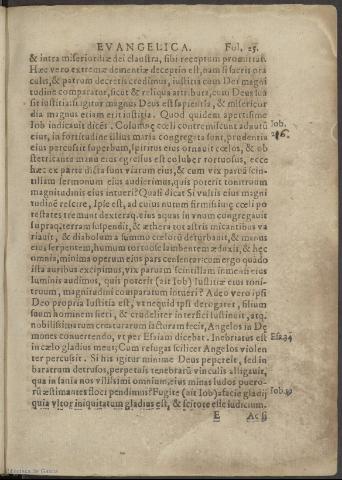 EVANGELICA. Fol. 25.
& intra misericordiæ dei claustra, sibi receptum promittas.
Hæc vero extremæ dementiæ deceptio est, nam si sacris ora
culis, & patrum decretis credimus, iustitia cum Dei magni
tudine comparatur, sicut & reliqua attributa, cum Deus ipse
sit iustitia: si igitur magnus Deus est sapiẽtia, & misericor
dia magnus etiam erit iustitia. Quod quidem apertissime
Iob indicauit dicẽs. Columnę cœli contremiscunt aduẽtũ
eius, in fortitudine illius maria congregata sunt, prudentia
eius percussit superbum, spiritus eius ornauit cœlos, & ob
stetricante manu eius egressus est coluber tortuosus, ecce
hæc ex parte dicta sunt viarum eius, & cum vix paruã scin-
tillam sermonum eius audierimus, quis poterit tonitruum
magnitudinis eius intueri? Quasi dicat Si vultis eius magni
tudinẽ rescire, Ipse est, ad cuius nutum firmissimę cœli po
testates tremunt dexterãq. eius aquas in vnum congregauit
supraq. terram suspendit, & æthera tot astris micantibus va
riauit, & diabolum a summo cœlorũ deturbauit, & manus
eius serpentem, humum tortuose lambentem ædoxit, & hęc
omnia, minima operum eius pars censentar: cum ergo quãdo
ista auribus excipimus, vix paruam scintillam inmensi eius
luminis audimus, quis poterit (ait Iob) Iustitiæ eius toni-
truum, magnitudini comparatum intueri? Adeo vero ipsi
Deo propria Iustitia est, vt nequid ipsi derogaret, filium
suum hominem fieri, & crudeliter interfici sustinuit, atq.
nobilissimarum creaturarum iacturam fecit, Angelos in Dę
mones conuertendo, vt per Esaiam dicebat. Inebriatus est
in cælo gladius meus; Cum refugas scilicet Angelos violen
ter percussit. Si his igitur minime Deus pepercit, sed in
baratrum detrusos, perpetuis tenebrarũ vinculis alligauit,
qua insania nos villissimi omnium, eius minas ludos puero-
rũ æstimantes floci pendimus? Fugite (ait Iob) a facie gladij
quia vltor iniquitatum gladius est, & scitote esse iudicium.
E Ac si
Iob.
26.
Esa. 34
Iob. 19
Biblioteca de Galicia